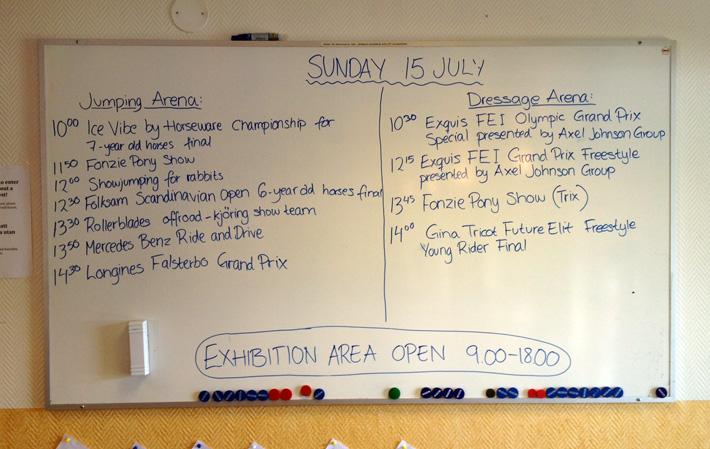 SUNDAY 15 JULY
Jumping Arena:
10⁰⁰ Ice Vibe by Horseware Championship for
7-year old horses final
11⁵⁰ Fonzie Pony Show
12⁰⁰ Showjumping for rabbits
12³⁰ Folksam Scandinavian Open 6-year old horses final
13³⁰ Rollerblades offroad-kjöring show team
13⁵⁰ Mercedes Benz Ride and Drive
14³⁰ Longines Falsterbo Grand Prix
Dressage Arena:
10³⁰ Exquis FEI Olympic Grand Prix
Special presented by Axel Johnson Group
12¹⁵ Exquis FEI Grand Prix Freestyle
presented by Axel Johnson Group
13⁴⁵ Fonzie Pony Show (Trix)
14⁰⁰ Gina Tricot Future Elit Freestyle
Young Rider Final
EXHIBITION AREA OPEN 9.00-18.00